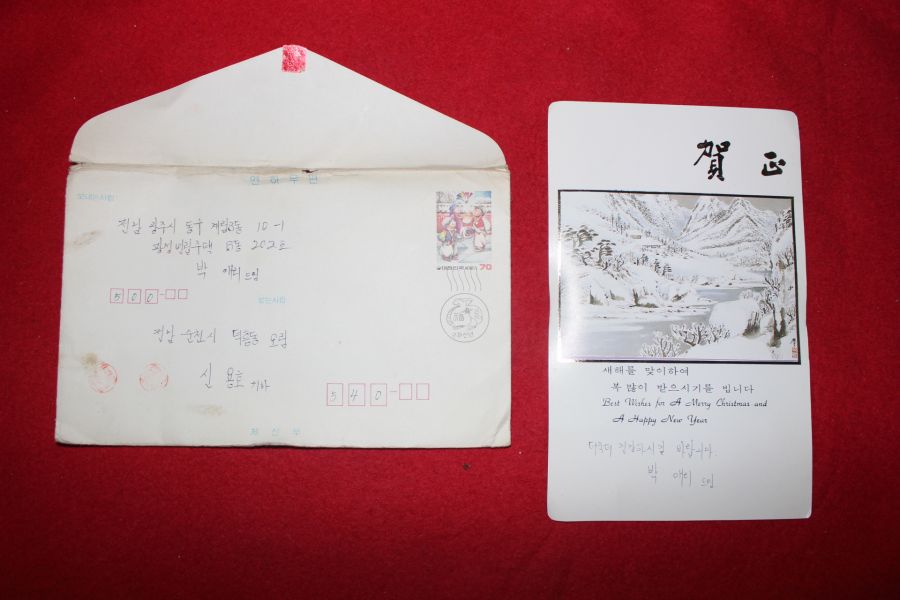 연하우편
보내는사람
전남 광주시 동구 계림3동 10-1
B동 202호
박 애리 드림
500-
받는사람
전남 순천시 덕흥동 오림
신 용호 귀하
540-
체신부
대한민국 70
賀正
새해를 맞이하여
복 많이 받으시기를 빕니다
Best Wishes for A Merry Christmas and
A Happy New Year
더욱더 건강하시길 바랍니다.
박 애리 드림